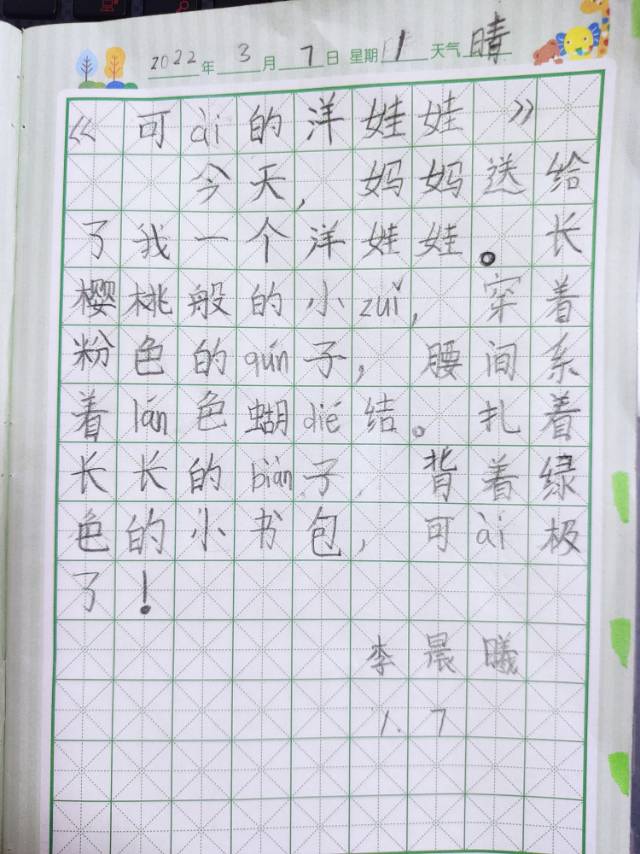 2022年3月7日 星期1 天气晴
《可ài的洋娃娃》
今天，妈妈送给
了我一个洋娃娃。长
樱桃般的小zuǐ，穿着
粉色的qún子，腰间系
着lán色蝴dié结。扎着
长长的biàn子，背着绿
色的小书包，可ài极
了！
李晨曦
1.7